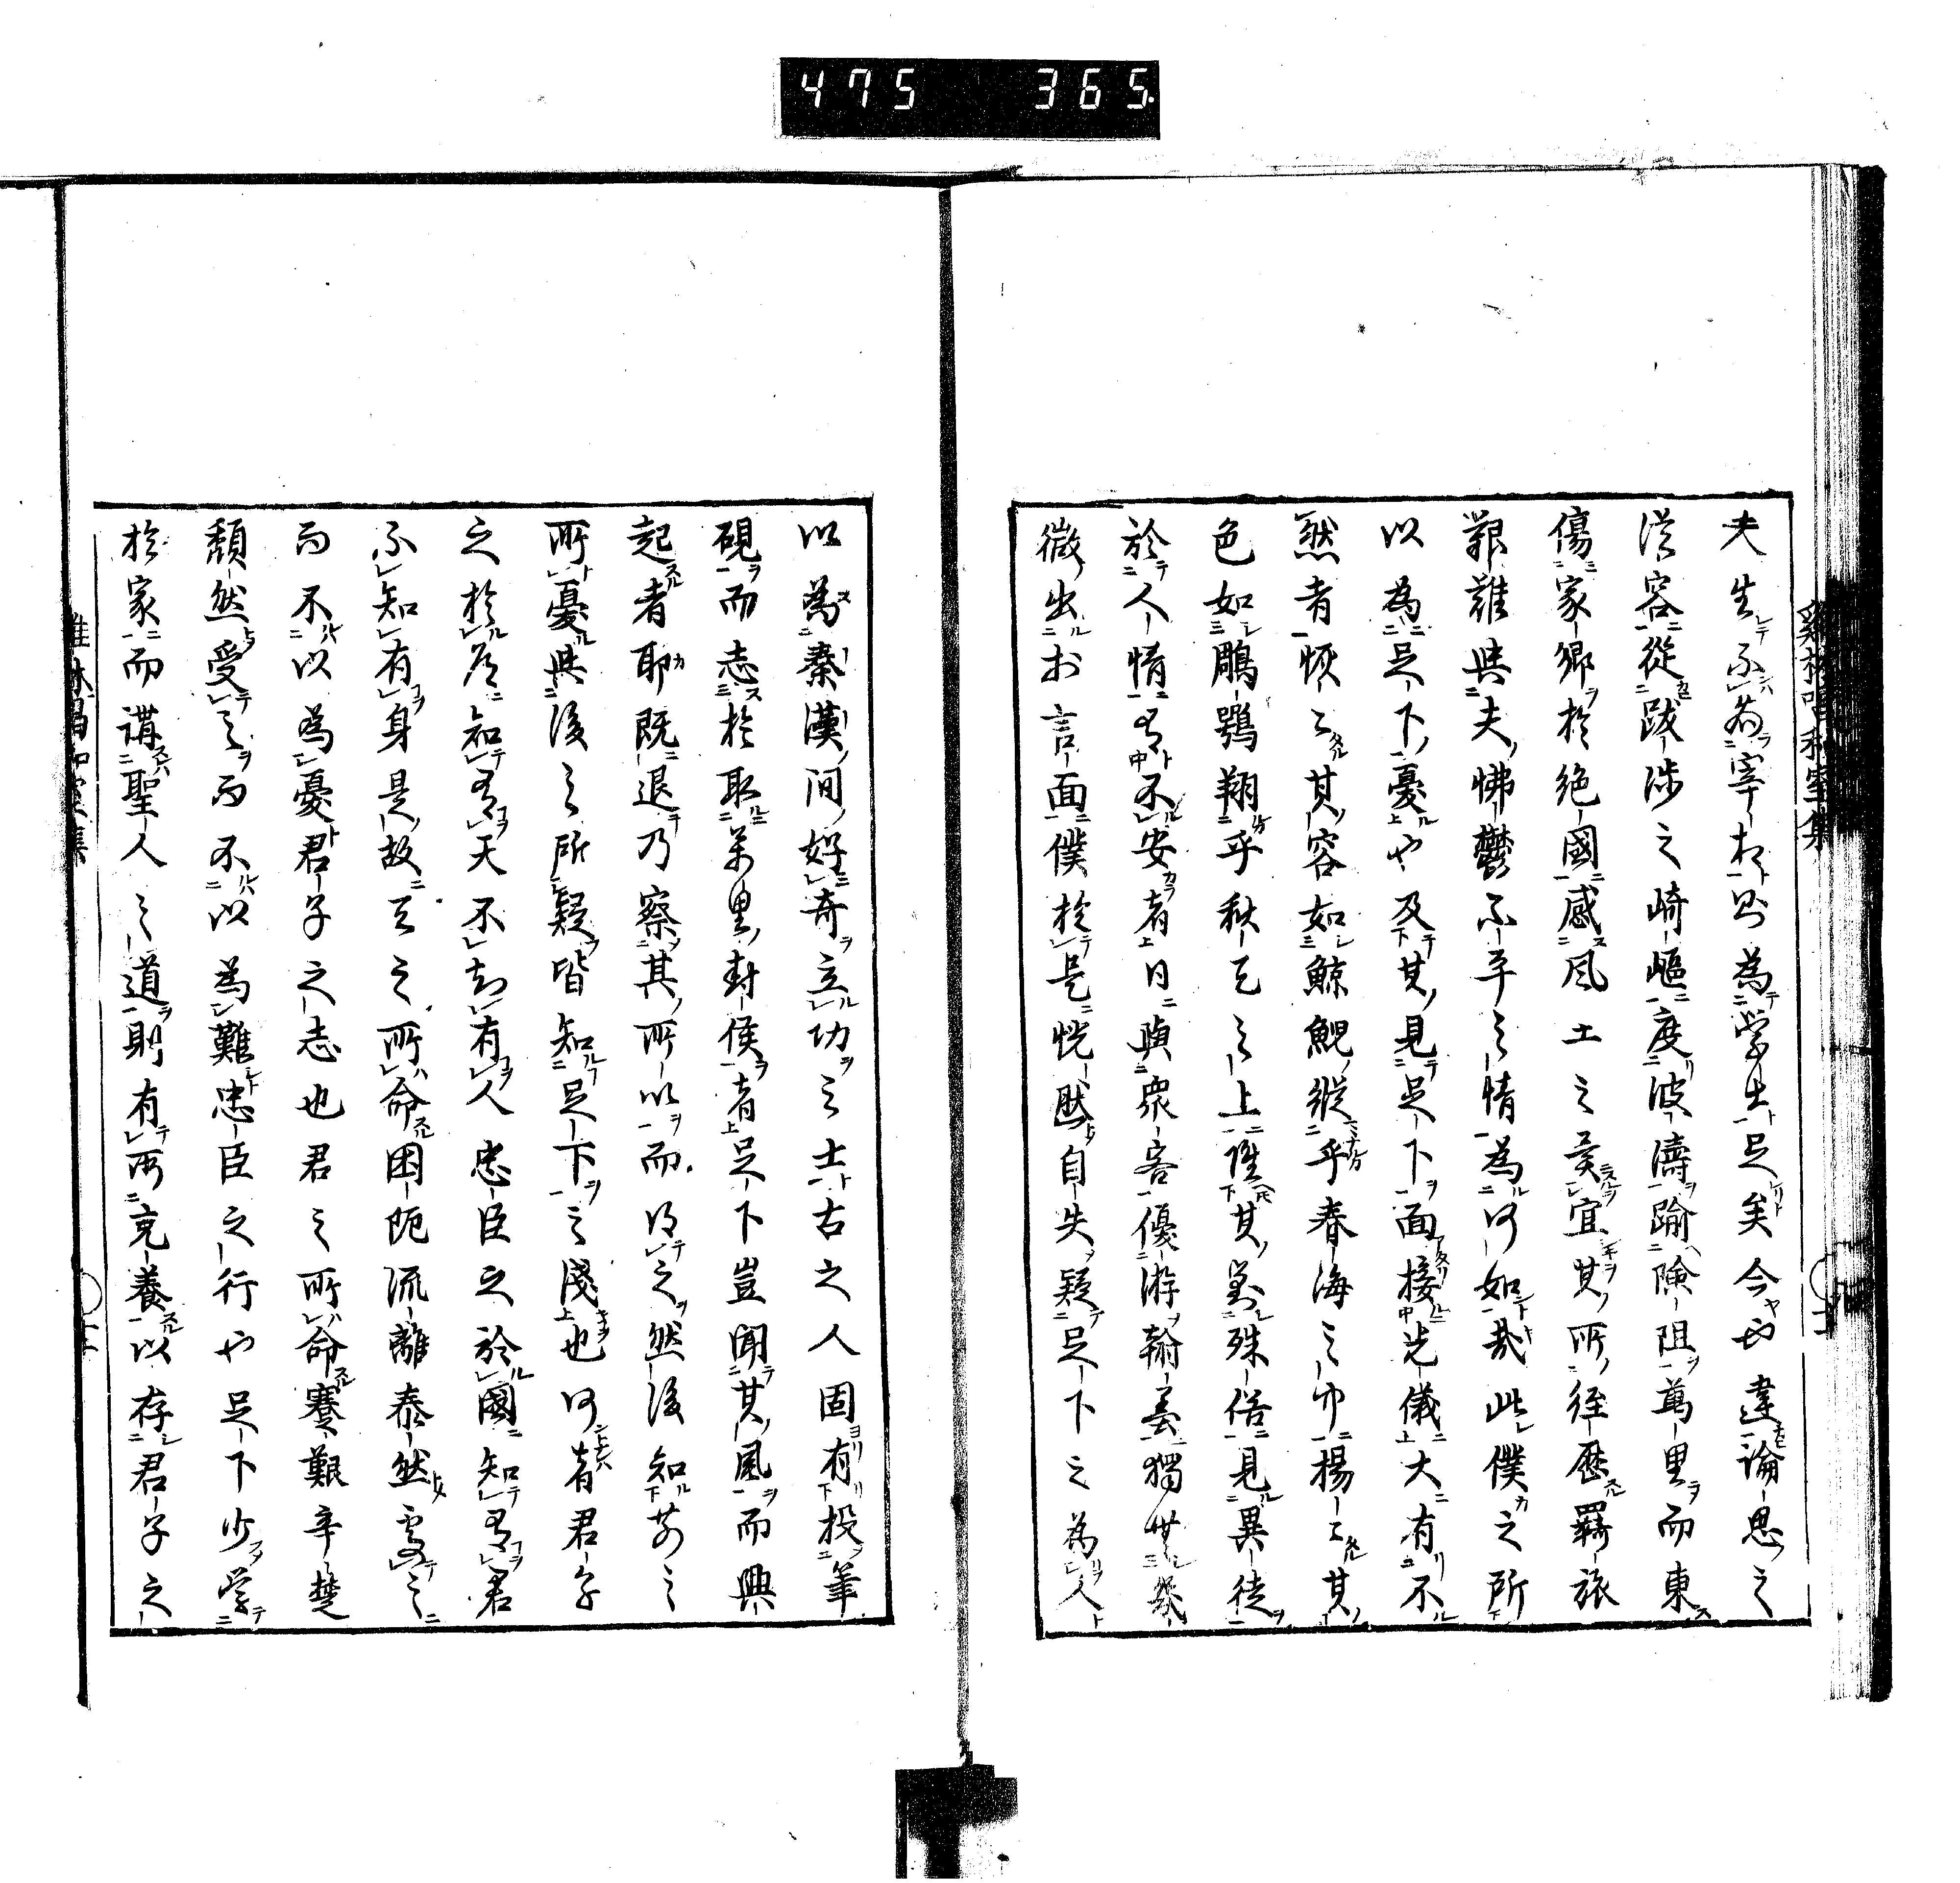 475 365
夫生不為宰相則為學士足矣今也違論思之
從容從跋涉之崎嶇度波濤踰險阻萬里而東
傷家鄉於絕國感風土之異宜其所徑歷羇旅
艱難與夫怫鬱不平之情為何如哉此僕之所
以為足下憂也及其見足下面接光儀大有不
然者恢々其容如鯨鯢縱乎春海之中揚々其
色如鵰鶚翔乎秋天之上雖其對殊俗見異徒
於人情有不安者日與衆客優游翰墨獨無幾
微出於言面僕於是恍然自失疑足下之為人
以為秦漢間好奇立功之士古之人固有投筆
硯而志於取萬里封侯者足下豈聞其風而興
起者耶既退乃察其所以而得之然後知前之
所憂與後之所疑皆知足下之淺也何者君子
之於道知有天不知有人忠臣之於國知有君
不知有身是故天之所命困阨流離泰然處之
而不以為憂君子之志也君之所命蹇艱辛楚
頹然受之而不以為難忠臣之行也足下少學
於家而講聖人之道則有所充養以存君子之